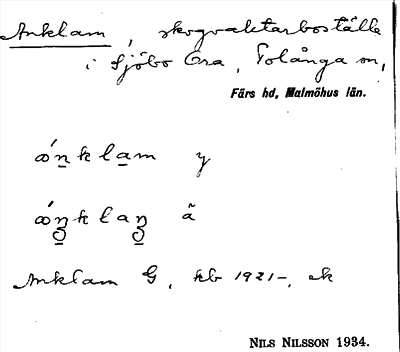 Anklam, skogvaktarboställe
i Sjöbo Ora, Tolånga sn,
Färs hd, Malmöhus län.
ǿn̠kla̠m y
ǿn̠klan̠ ä
Anklam G, kb 1921–, ek
NILS NILSSON 1934.